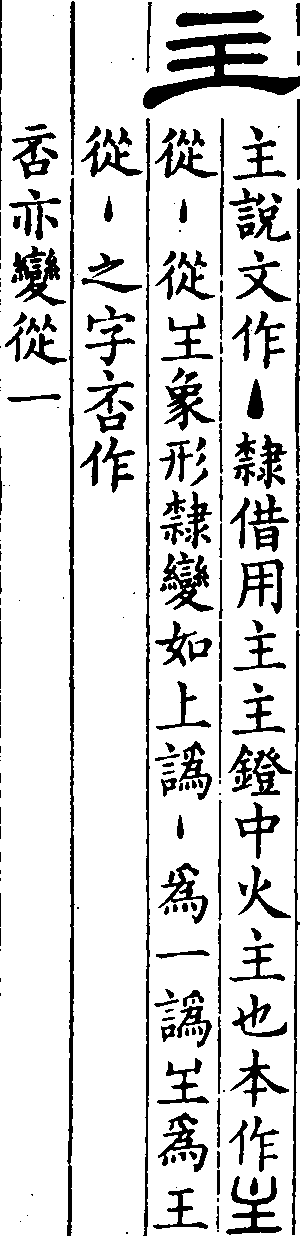 主
主說文作丶隸借用主主鐙中火主也本作
從丶從象形隸變如上譌丶爲一譌爲王
從丶之字作
亦變從一